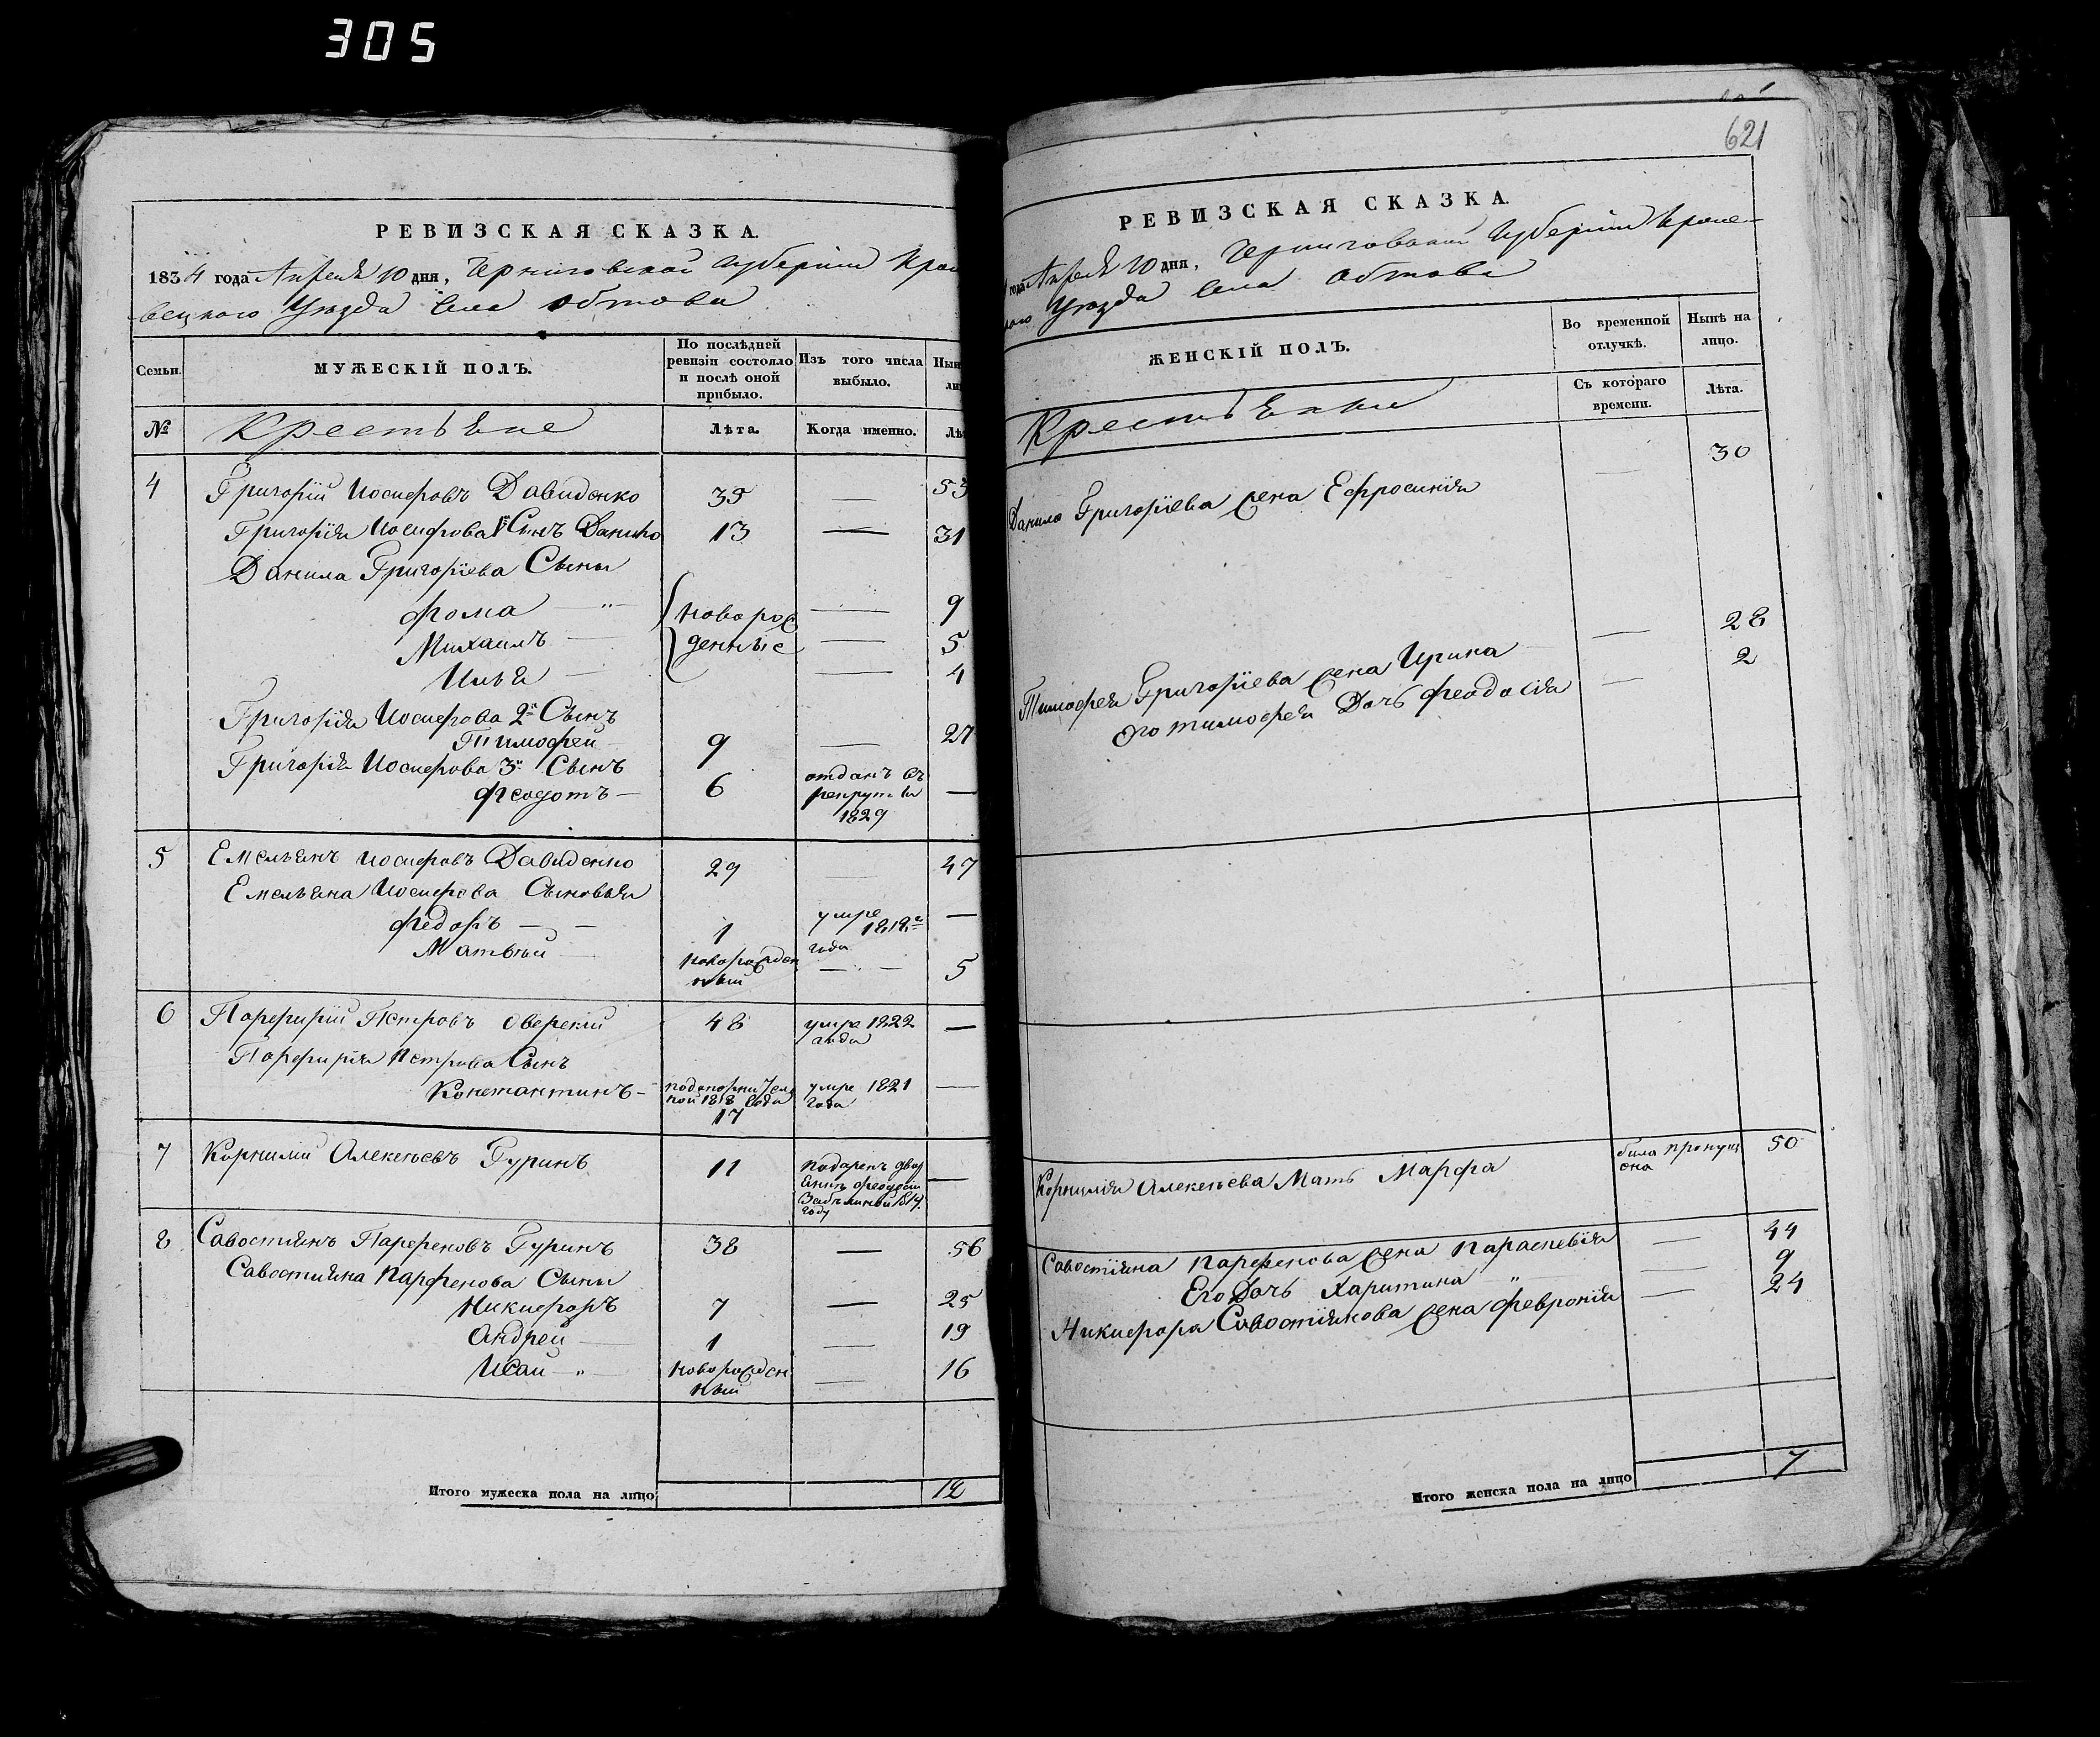 305
РЕВИЗСКАЯ СКАЗКА.
1834 года Апреля 10 дня, Черниговской Губернии Кроле
вецкого Уезда Села Обтова
Семьи.
МУЖЕСКІЙ ПОЛЪ.
По послѣдней ревизіи состояло и послѣ оной прибыло.
Изъ того числа выбыло.
Нын
ли
№
Крестьяне
Лѣта.
Когда именно.
Лѣ
4 Григорій Иосифовъ Давиденко 35 — 53
Григорія Иосифова 1й Сынъ Данило 13 — 31
Данила Григоріева Сыны
Фома — новорож — 9
Михаилъ — денные — 5
Илья — — 4
Григорія Иосифова 2й Сынъ
Тимофей 9 — 27
Григорія Иосифова 3й Сынъ
Феодотъ — 6 отданъ въ рекруты 1829 —
5 Емельянъ Иосифовъ Давиденко 29 — 47
Емельяна Иосифова Сыновья
Федоръ — — 1 умре 1818г года —
Матвѣй — новорожден ный — 5
6 Порфирій Петровъ Оверскій 48 умре 1822 года —
Порфирія Петрова Сынъ
Константинъ — 1818 года 17 умре 1821 года —
7 Корнилій Алексѣевъ Гуринъ 11 подаренъ двор году —
8 Савостиянъ Парфеновъ Гуринъ 38 — 56
Савостияна Парфенова Сыны
Никифоръ 7 — 25
Андрей — 1 — 19
Исаи — новорожден ный — 16
Итого мужеска пола на лицо 12
621
РЕВИЗСКАЯ СКАЗКА.
года Апреля 10 дня, Черниговской Губерніи Кроле-
кого Уезда Села Обтова
ЖЕНСКІЙ ПОЛЪ.
Во временной отлучкѣ.
Нынѣ на лицо.
Крестьянки
Съ котораго времени.
Лѣта.
Данила Григоріева жена Ефросинія — 30
Тимофея Григоріева жена Ирина — 28
Его тимофея Дочь Феодосія — 2
Корнилія Алексѣева Мать Марфа била пропущ ена 50
Савостіяна Парфенова жена Параскевія — 44
Его Дочь Харитина — 9
Никифора Савостіянова жена Февронія — 24
Итого женска пола на лицо 7